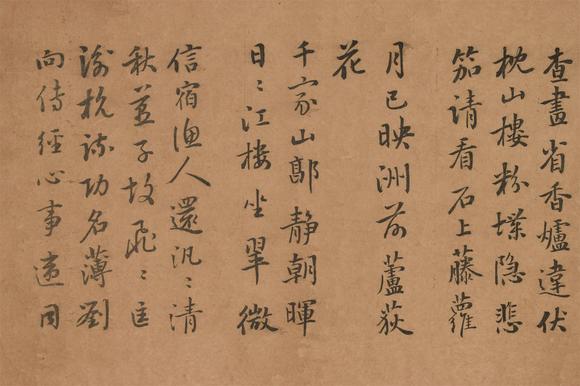 查畫省香爐違伏
枕山樓粉堞隐悲
笳請看石上藤蘿
月已映洲前蘆荻
花
千家山郭静朝暉
日〻江樓坐翠微
信宿漁人還汎〻清
秋燕子故飛〻匡
衡抗疏功名薄劉
向傳經心事違同